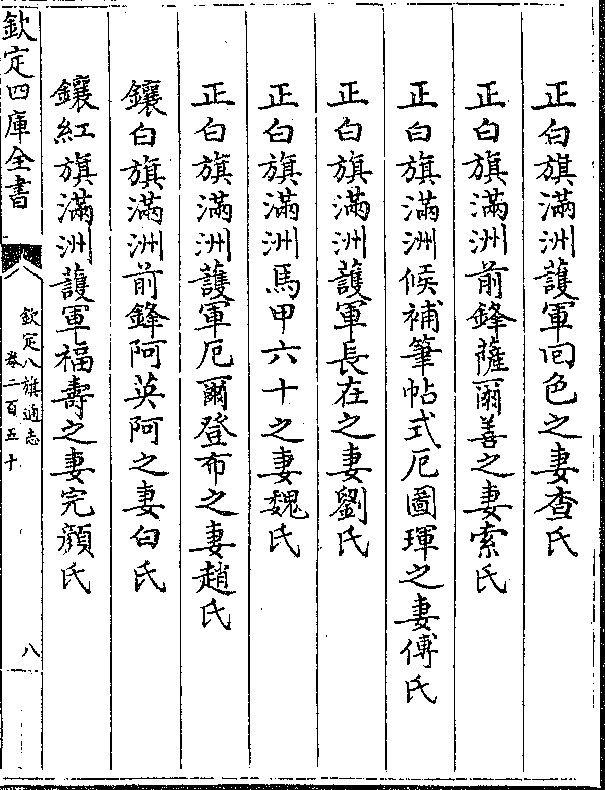 正白旗滿洲護軍囘色之妻查氏
正白旗滿洲前鋒薩爾善之妻索氏
正白旗滿洲候補筆帖式厄圖琿之妻傅氏
正白旗滿洲護軍長在之妻劉氏
正白旗滿洲馬甲六十之妻魏氏
正白旗滿洲護軍厄爾登布之妻趙氏
鑲白旗滿洲前鋒阿英阿之妻白氏
鑲紅旗滿洲護軍福壽之妻完顔氏
欽定四庫全書
欽定八旗通志
卷二百五十
八